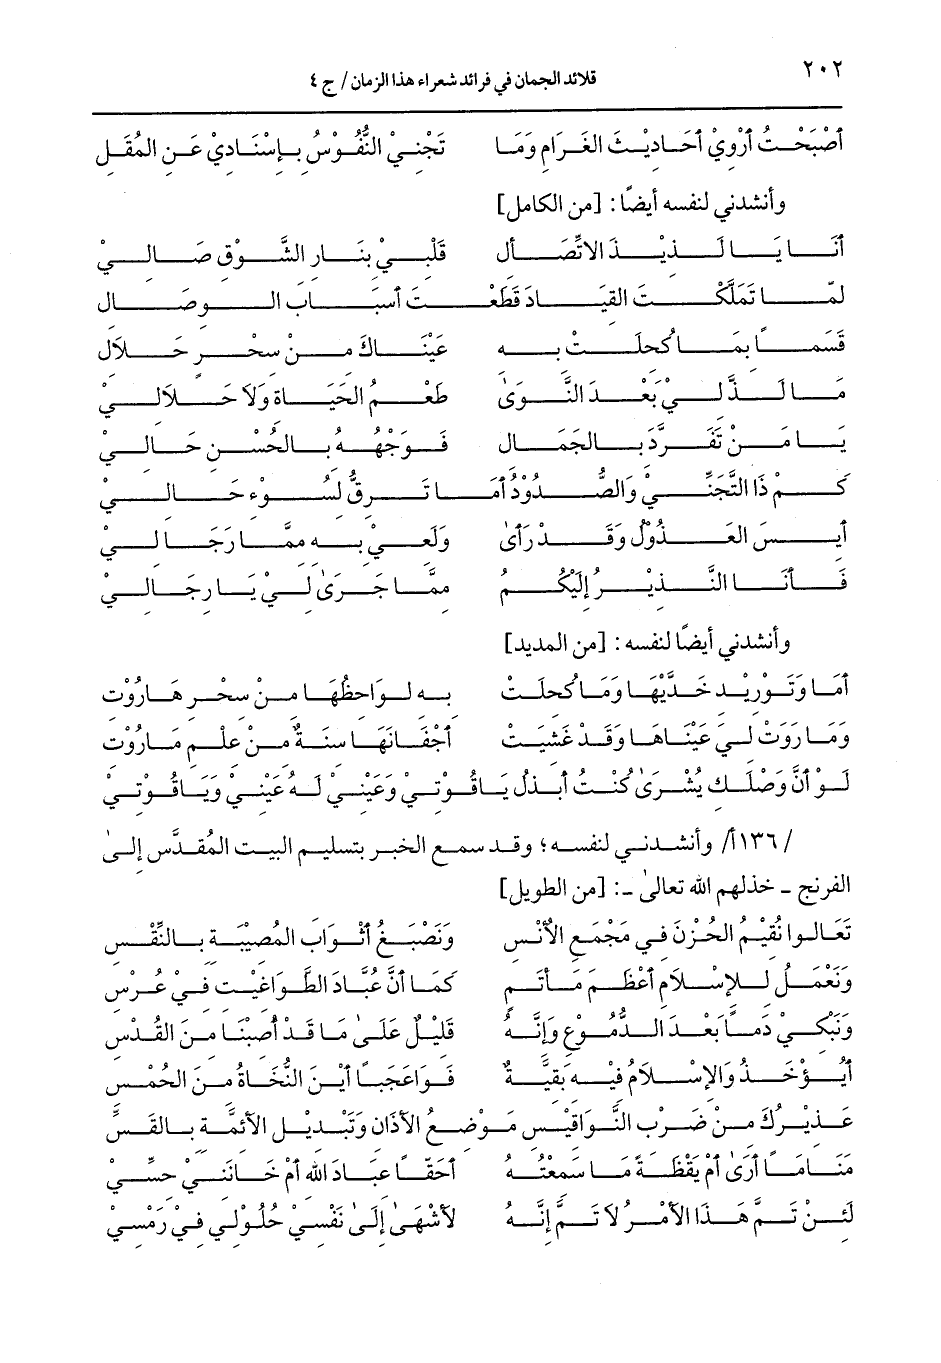 ٢٠٢
قلائد الجمان في فرائد شعراء هذا الزمان/ ج ٤
أَصْبَحْتُ أَرْوِيْ أَحَادِيْثَ الغَرَامِ وَمَا تَجْنِيْ النُّفُوْسُ بِإِسْنَادِيْ عَنِ المُقَلِ
وأنشدني لنفسه أيضًا: [من الكامل]
أَنَا يَا لَذِيْذَ الاتِّصَالِ قَلْبِيْ بِنَارِ الشَّوْقِ صَالِيْ
لَمَّا تَمَلَّكْتَ القِيَادَ قَطَعْتَ أَسْبَابَ الوِصَالِ
قَسَمًا بِمَا كُحِلَتْ بِهِ عَيْنَاكَ مِنْ سِحْرٍ حَلاَلِ
مَا لَذَّ لِيْ بَعْدَ النَّوَىٰ طَعْمُ الحَيَاةِ وَلاَ حَلاَلِيْ
يَا مَنْ تَفَرَّدَ بِالجَمَالِ فَوَجْهُهُ بِالحُسْنِ حَالِيْ
كَمْ ذَا التَّجَنِّيْ وَالصُّدُوْدُ أَمَا تَرِقُّ لِسُوْءِ حَالِيْ
أَيِسَ العَذُوْلُ وَقَدْ رَأَىٰ وَلَعِيْ بِهِ مِمَّا رَجَا لِيْ
فَأَنَا النَّذِيْرُ إِلَيْكُمُ مِمَّا جَرَىٰ لِيْ يَا رِجَالِيْ
وأنشدني أيضًا لنفسه: [من المديد]
أَمَا وَتَوْرِيْدِ خَدَّيْهَا وَمَا كُحِلَتْ بِهِ لَوَاحِظُهَا مِنْ سِحْرِ هَارُوْتِ
وَمَا رَوَتْ لِيَ عَيْنَاهَا وَقَدْ غَشِيَتْ أَجْفَانَهَا سِنَةٌ مِنْ عِلْمِ مَارُوْتِ
لَوْ أَنَّ وَصْلَكِ يُشْرَىٰ كُنْتُ أَبْذُلُ يَاقُوْتِيْ وَعَيْنِيْ لَهُ عَيْنِيْ وَيَاقُوْتِيْ
/١٣٦أ/ وأنشدني لنفسه؛ وقد سمع الخبر بتسليم البيت المُقدَّس إلىٰ
الفرنج ـ خذلهم الله تعالىٰ ـ: [من الطويل]
تَعَالَوا نُقِيْمُ الحُزْنَ فِي مَجْمَعِ الأُنْسِ وَنَصْبَغُ أَثْوَابَ المُصِيْبَةِ بِالنِّقْسِ
وَنَعْمَلُ لِلإِسْلاَمِ أَعْظَمَ مَأْتَمٍ كَمَا أَنَّ عُبَّادَ الطَّوَاغِيْتِ فِيْ عُرْسِ
وَنَبْكِيْ دَمًا بَعْدَ الدُّمُوْعِ وَإِنَّهُ قَلِيْلٌ عَلَىٰ مَا قَدْ أُصِبْنَا مِنَ القُدْسِ
أَيُؤْخَذُ وَالإِسْلاَمُ فِيْهِ بَقِيَّةٌ فَوَاعَجَبًا أَيْنَ النُّخَاةُ مِنَ الحُمْسِ
عَذِيْرُكَ مِنْ ضَرْبِ النَّوَاقِيْسِ مَوْضِعَ الأَذَانِ وَتَبْدِيْلِ الأَئِمَّةِ بِالقَسِّ
مَنَامًا أَرَىٰ أَمْ يَقْظَةً مَا سَمِعْتُهُ أَحَقًّا عِبَادَ الله أَمْ خَانَنِيْ حِسِّيْ
لَئِنْ تَمَّ هَذَا الأَمْرُ لاَ تَمَّ إِنَّهُ لأَشْهَىٰ إِلَىٰ نَفْسِيْ حُلُوْلِي فِيْ رَمْسِيْ